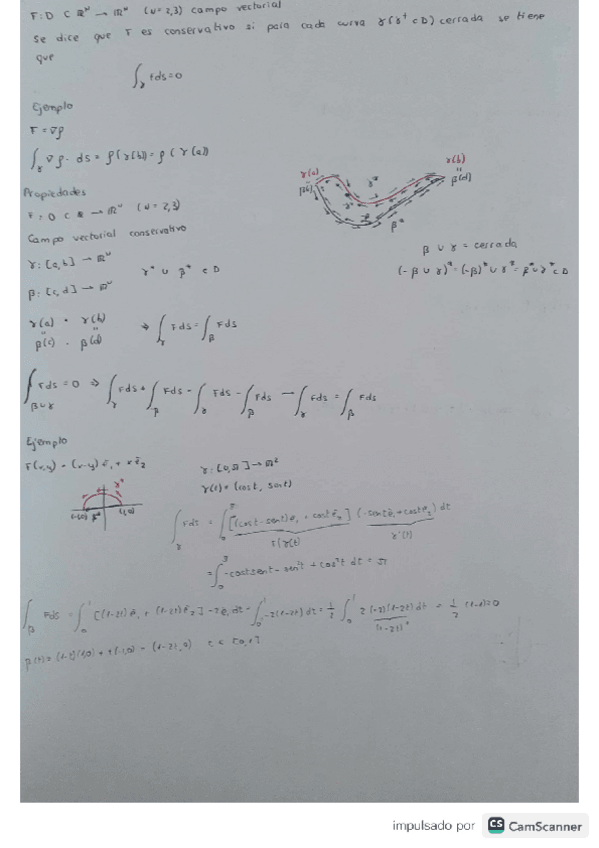 F: D ⊂ ℝᴺ → ℝᴺ (N=2,3) campo vectorial
Se dice que F es conservativo si para cada curva γ(γ* ⊂ D) cerrada se tiene
que
∫γ Fds=0
Ejemplo
F = ∇ρ
∫γ ∇ρ · ds = ρ(γ(b)) = ρ(γ(a))
γ(a)
β(c)
γ(b)
β(d)
γ*
β*
Propiedades
F: D ⊂ ℝ → ℝᴺ (N=2,3)
Campo vectorial conservativo
β ∪ γ = cerrada
γ: [a,b] → ℝᴺ
γ* ∪ β* ⊂ D
(-β ∪ γ)* = (-β)* ∪ γ* = β* ∪ γ* ⊂ D
β: [c,d] → ℝᴺ
γ(a) = γ(b)
β(c) = β(d)
⇒ ∫γ Fds = ∫β Fds
∫β∪γ Fds = 0 ⇒ ∫γ Fds + ∫β Fds - ∫γ Fds - ∫β Fds → ∫γ Fds = ∫β Fds
Ejemplo
F(x,y) = (x-y) e₁ + x e₂
γ: [0,π] → ℝ²
γ(t) = (cos t, sen t)
γ*
(-1,0) β* (1,0)
∫γ Fds = ∫ [(cost - sent) e₁ + cost e₂] (-sent e₁ + cost e₂) dt
F(γ(t)) γ'(t)
= ∫ -cost sent - sen²t + cos²t dt = π
∫β Fds = ∫₀¹ [(1-2t) e₁ + (1-2t) e₂] -2e₁ dt = ∫₀¹ -2(1-2t) dt = 1/2 ∫₀¹ 2(-2)(1-2t) dt = 1/2 (1-1) = 0
(1-2t)²
β(t) = (1-t)(1,0) + t(-1,0) = (1-2t, 0) t ∈ [0,1]
impulsado por CS CamScanner